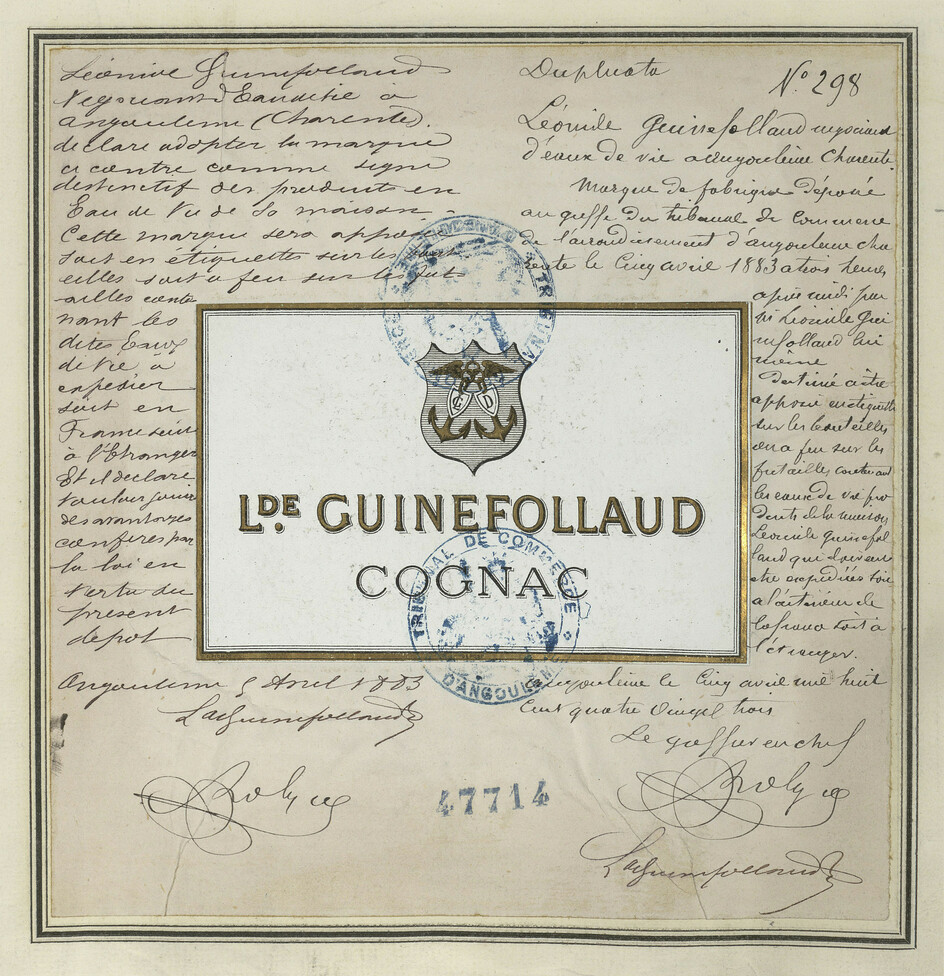 Léonide Guinefollaud
Négociant d'Eau de Vie a
angoulême (Charente).
declare adopter la marque
ci contre comme signe
destinctif des produits en
Eau de Vie de Sa maison.
Cette marque sera apposé
soit en étiquettes sur les
soit a feu sur les fut
ailles conte
nant les
dites Eaux
de Vie a
expedier
soit en
France soit
a l'Etranger
Et il declare
vouloir jouir
des avantages
conferés par
la loi en
vertu du
present
depot
Angouleme 5 Avril 1883
LdeGuinefollaud
Duplicata
N° 298
Léonide Guinefollaud negociant
d'eaux de vie a angoulême Charente
Marque de fabrique déposée
au greffe du tribunal de Commerce
de l'arrondissement d'angouleme cha
rente le Cinq avril 1883 a trois heures
après midi par
Mr Léonide Gui
nefollaud lui
même
Destinée a être
apposée en étiquette
sur les bouteilles
ou a feu sur les
futailles contenant
les eaux de vie pro
duits de la maison
Léonide guinefol
laud qui doivent
etre expediées soit
a l'intérieur de
la france soit a
l'étranger.
angoulême le Cinq avril mil huit
Cent quatre Vingt trois
Le greffier en chef
LdeGuinefollaud
C D
LDE. GUINEFOLLAUD
COGNAC
TRIBUNAL DE COMMERCE
D'ANGOULEME
47714